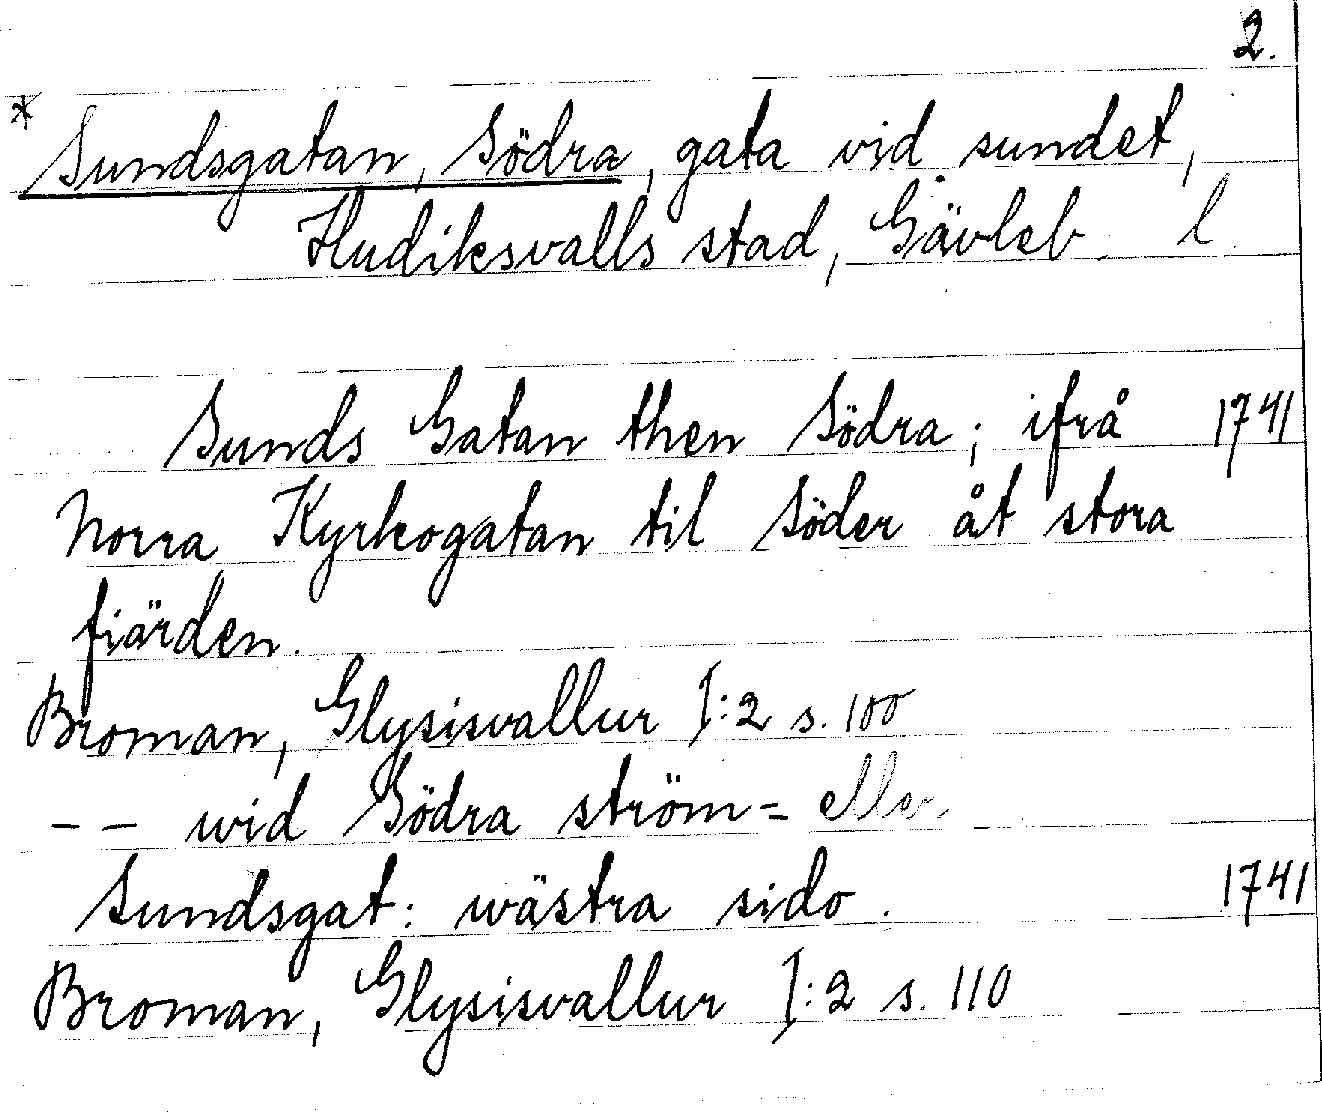 2.
* Sundsgatan, Södra, gata vid sundet,
Hudiksvalls stad, Gävleb. l.
Sunds Gatan then Södra; ifrå 1741
Norra Kyrkogatan til Söder åt stora
fiärden.
Broman, Glysisvallur I:2 s. 100
-- wid Södra ström= eller
Sundsgat: wästra sido. 1741
Broman, Glysisvallur I:2 s. 110